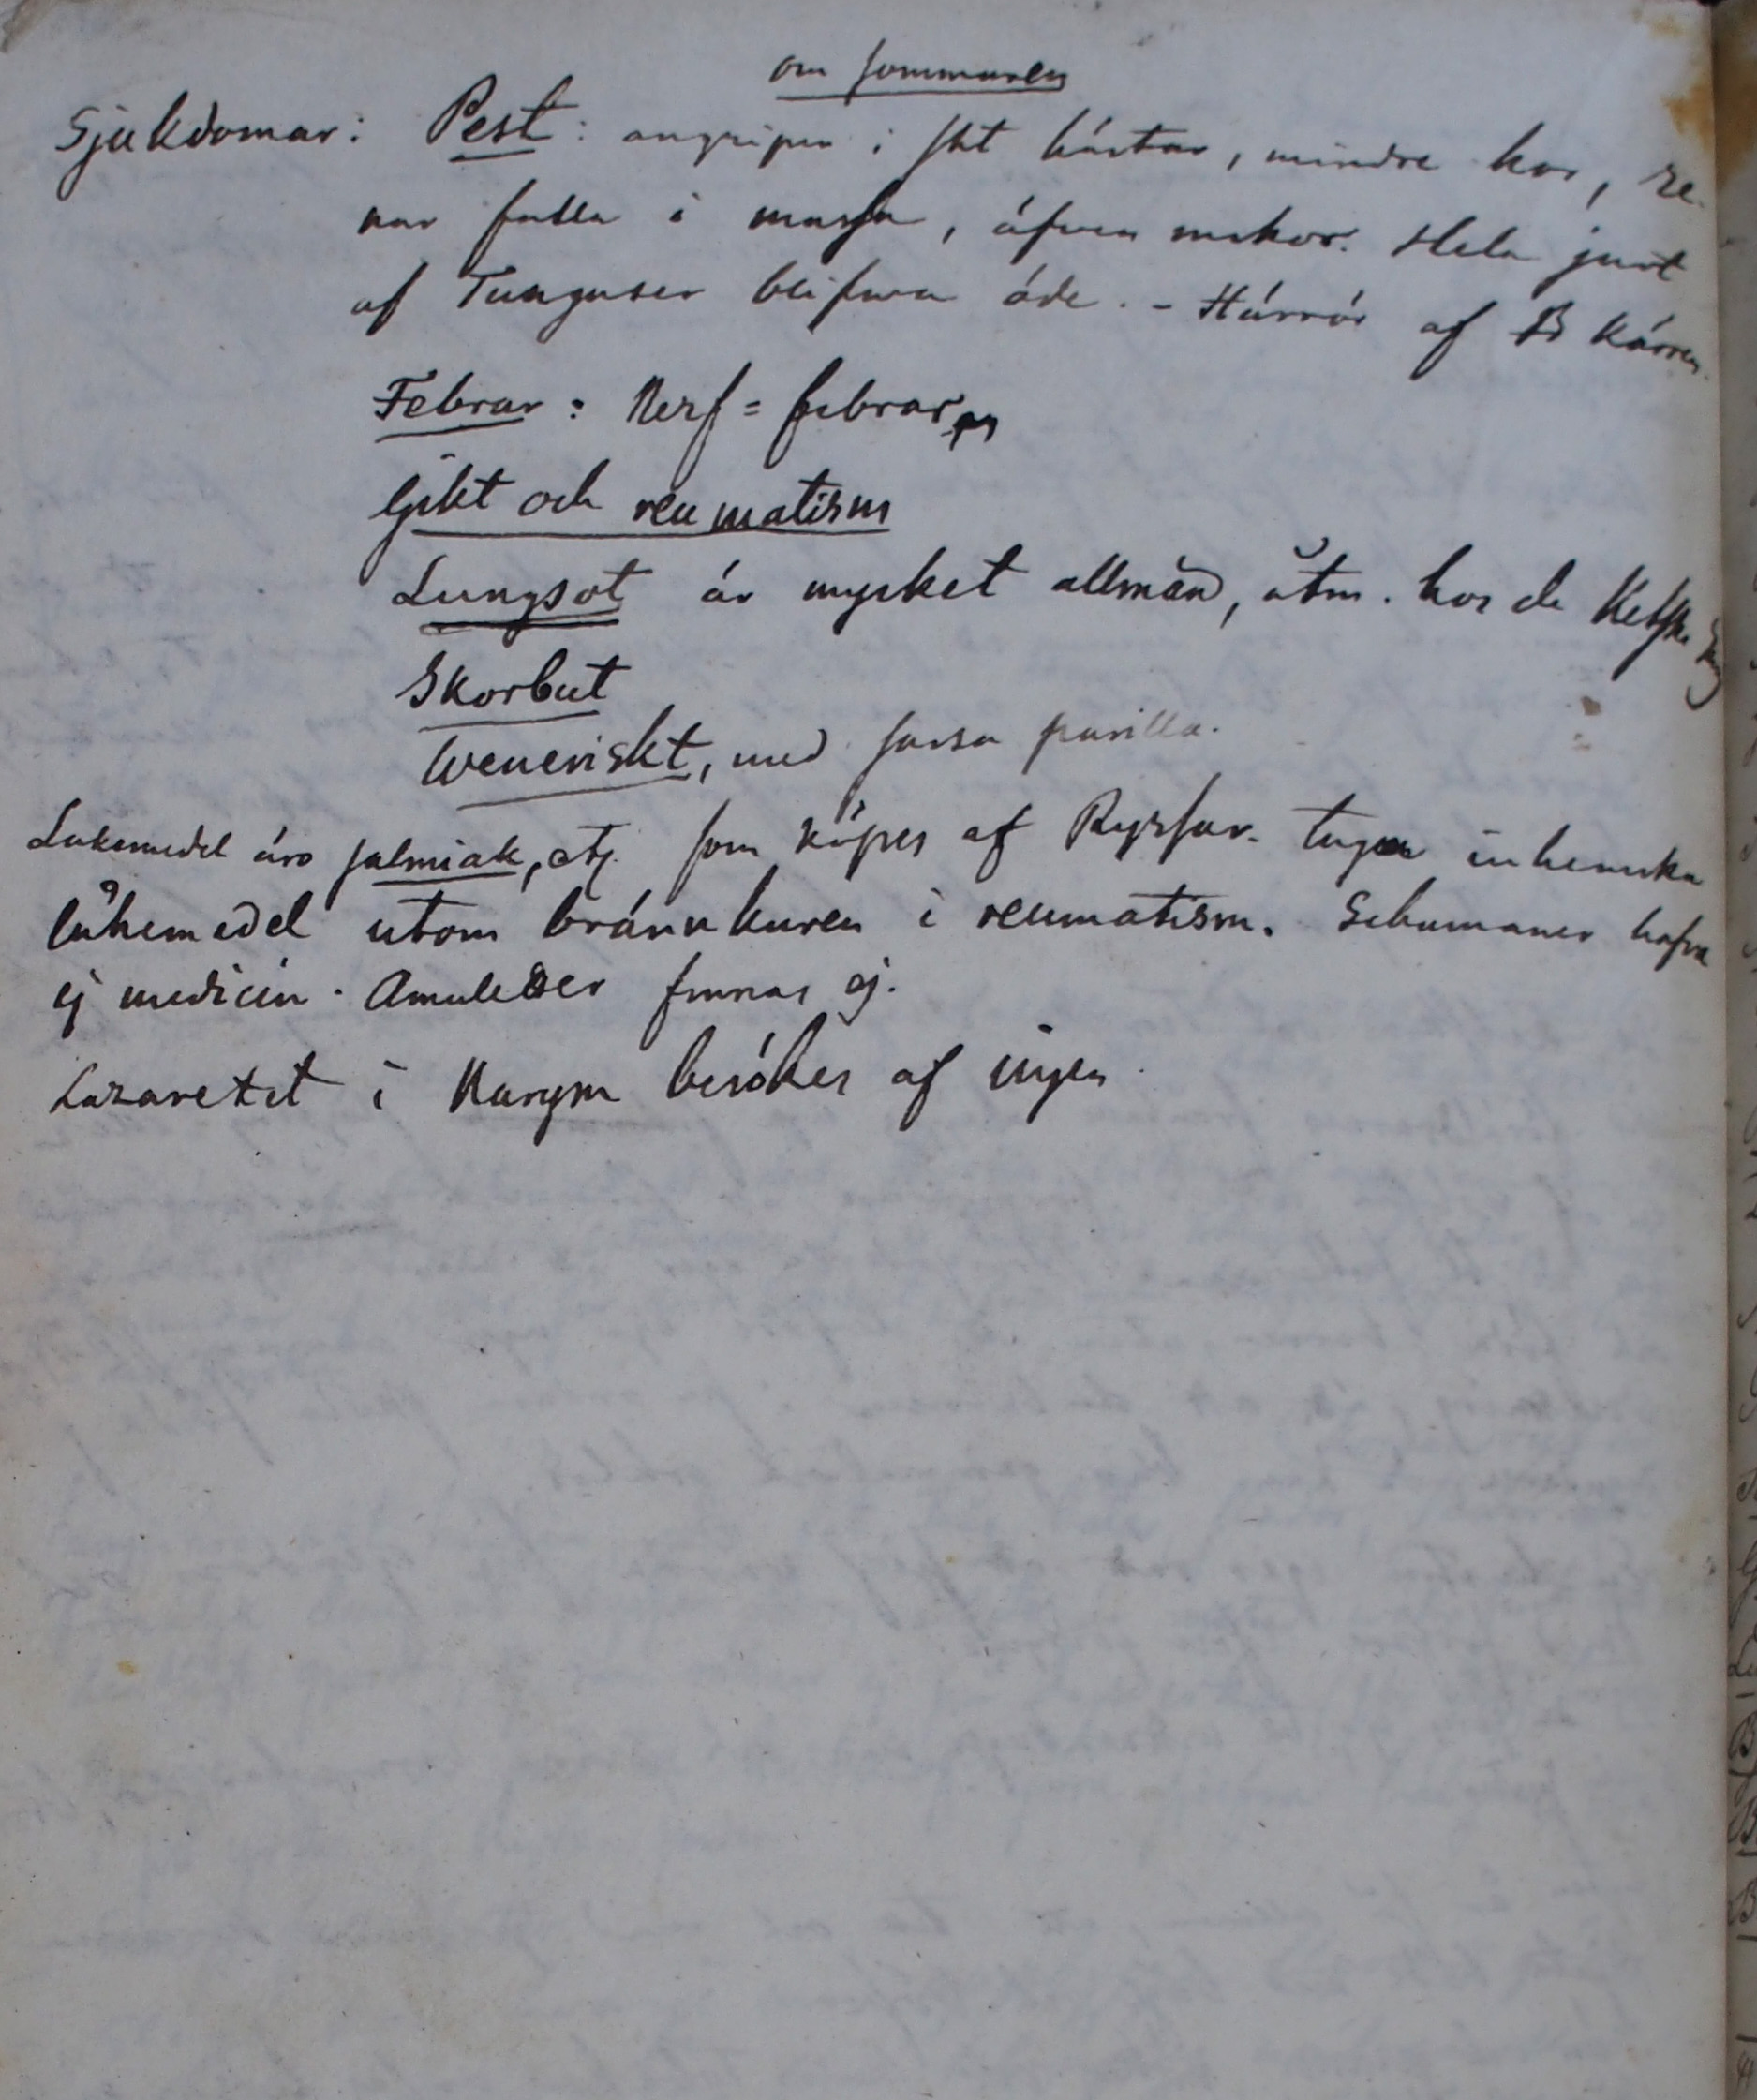 om sommaren
Sjukdomar: Pest: angriper i sht hästar, mindre kor, re-
nar falla i massa, äfven mskor. Hela jurt
af Tunguser blifva öde. - Härrör af kärren.
Febrar: Nerf = febrar
Gikt och reumatism
Lungsot är mycket allmän, åtm. hos de Ketska
Skorbut
Weneriskt, med sarsa parilla.
Läkemedel äro salmiak, etc. som köpes af Ryssar. Inga inhemska
läkemedel utom brännkuren i reumatism. Schamaner hafva
ej medicin. Amuletter finnas ej.
Lazarettet i Narym besökes af ingen.